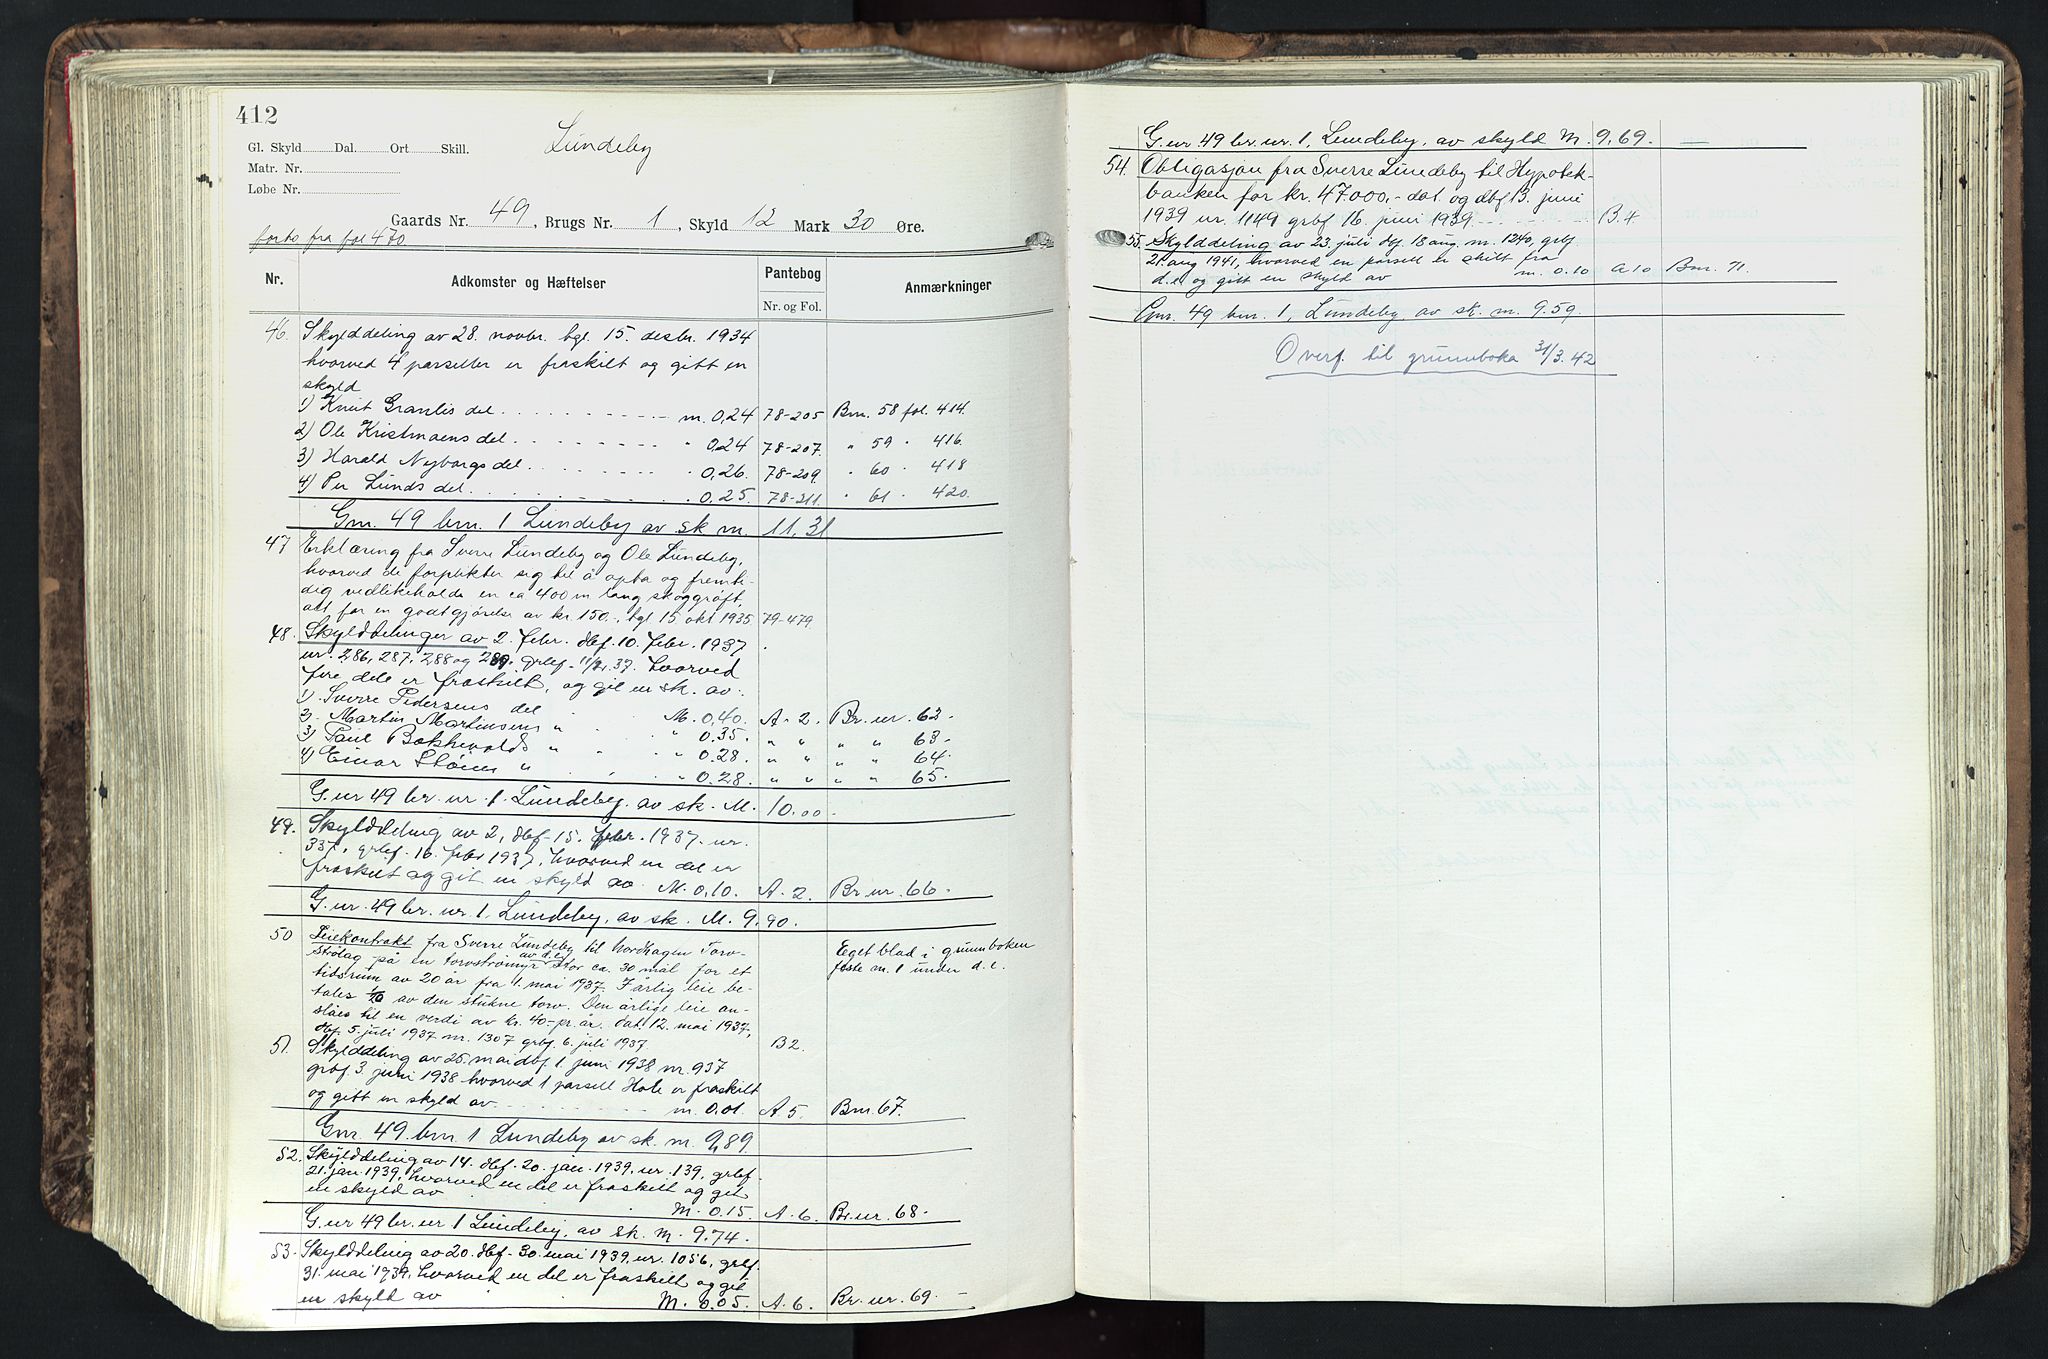 412
Gl. Skyld Dal. Ort Skill. Lundeby
Matr. Nr.
Løbe Nr.
Gaards Nr. 49, Brugs Nr. 1, Skyld 12 Mark 30 Øre.
forts fra fol 470
Nr. Adkomster og Hæftelser Pantebog Nr. og Fol. Anmærkninger
46. Skylddeling av 28. novbr. tgl. 15. desbr. 1934
hvorved 4 parseller er fraskilt og gitt en
skyld
1) Knut Granlis del m. 0,24 78-205 Bnr. 58 fol. 414.
2) Ole Kristmoens del " 0,24 78-207. " 59 " 416.
3) Harald Nyborgs del " 0,26. 78-209. " 60 " 418
4) Per Lunds del " 0.25. 78-211. " 61 " 420.
Gnr. 49 bnr. 1 Lundeby av sk m. 11,31
47 Erklæring fra Sverre Lundeby og Ole Lundeby,
hvorved de forplikter sig til å opta og fremti-
dig vedlikeholde en ca 400 m lang skoggrøft,
alt for en godtgjørelse av kr. 150.-, tgl. 15 okt 1935 79-479.
48. Skylddelinger av 2. febr. dbf. 10. febr. 1937
nr. 286, 287, 288 og 289, grbf. 11/2.37. hvorved
fire dele er fraskilt, og git en sk. av:
1). Sverre Pedersens del M. 0,40. A-2. Br. nr. 62.
2). Martin Martinsens " " 0.35. " " " " 63.
3) Paul Bækkevolds " " 0.28. " " " " 64.
4) Einar Støens " " 0.28. " " " " 65.
G. nr 49 br. nr. 1. Lundeby. av sk. M. 10.00.
49. Skylddeling av 2, dbf. 15. febr. 1937. nr.
337, grbf. 16. febr 1937, hvorved en del er
fraskilt og git en skyld av. M. 0,10. A. 2. Br. nr. 66.
G. nr. 49 br. nr. 1, Lundeby, av sk. M. 9.90.
50 Leiekontrakt fra Sverre Lundeby til Nordhagen Torv- Eget blad i grunnboken
strølag på en torvstrømyr av d.e. stor ca. 30 mål for et feste nr. 1 under d.e.
tidsrum av 20 år fra 1. mai 1937. I årlig leie be-
tales 1/10 av den stukne torv. Den årlige leie an-
slåes til en verdi av kr. 40.- pr. år. dat. 12. mai 1937,
dbf. 5. juli 1937 nr. 1307 grbf. 6. juli 1937. B2.
51. Skylddeling av 25. mai dbf. 1. juni 1938 nr. 937
grbf. 3. juni 1938 hvorved 1 parsell er fraskilt
og gitt en skyld av m. 0,01. A. 5. Bnr. 67.
Gnr. 49. bnr. 1 Lundeby av sk. m. 9,89.
52. Skylddeling av 14. dbf. 20. jan. 1939, nr. 139, grbf.
21. jan. 1939, hvorved en del er fraskilt og git
en skyld av M. 0.15. A. 6. Br. nr. 68.
G. nr 49 br. nr 1 Lundeby, av sk. M. 9.74.
53. Skylddeling av 20. dbf. 30. mai 1939, nr. 1056, grbf.
31. mai 1939, hvorved en del er fraskilt og git
en skyld av M. 0.05. A. 6. Br. nr. 69.
G. nr. 49 br. nr. 1, Lundeby, av skyld M. 9.69.
54. Obligasjon fra Sverre Lundeby til Hypotek-
banken for kr. 47.000,- dat. og dbf. 13. juni
1939 nr. 1149 grbf 16. juni 1939. B. 4
55. Skylddeling av 23. juli dbf. 18 aug. nr. 1240, grbf
21. aug 1941, hvorved en parsell er skilt fra
d.e. og gitt en skyld av m. 0.10 A 10 Bnr. 71.
Gnr. 49 bnr. 1, Lundeby, av sk. m. 9.59.
Overf. til grunnboka 31/3.42